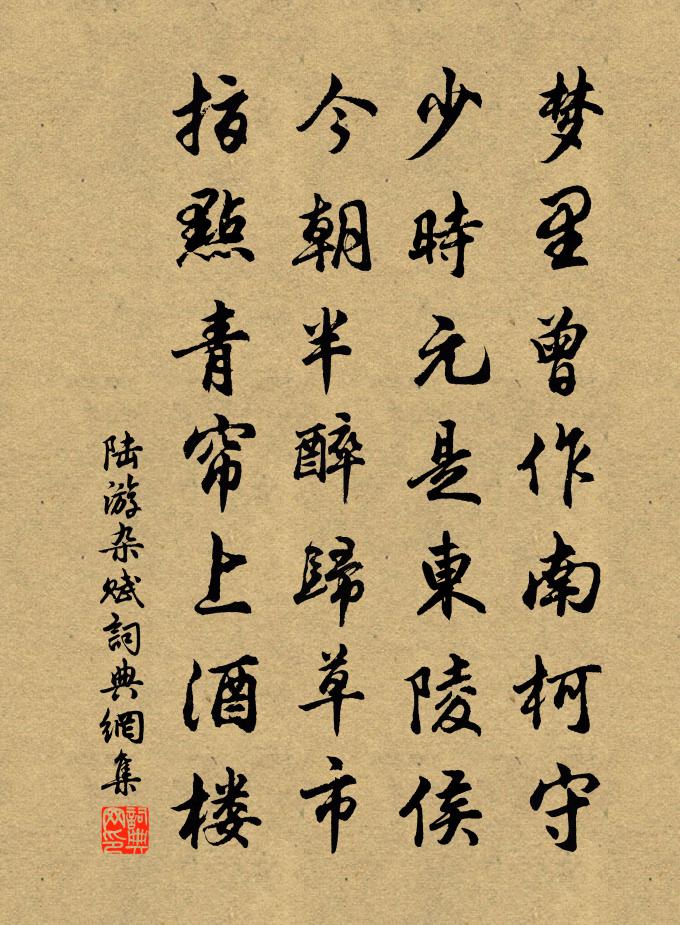 梦里曾作南柯守
少時元是東陵侯
今朝半醉歸草市
指點青帘上酒楼
陆游杂赋詞典網集
詞典网印